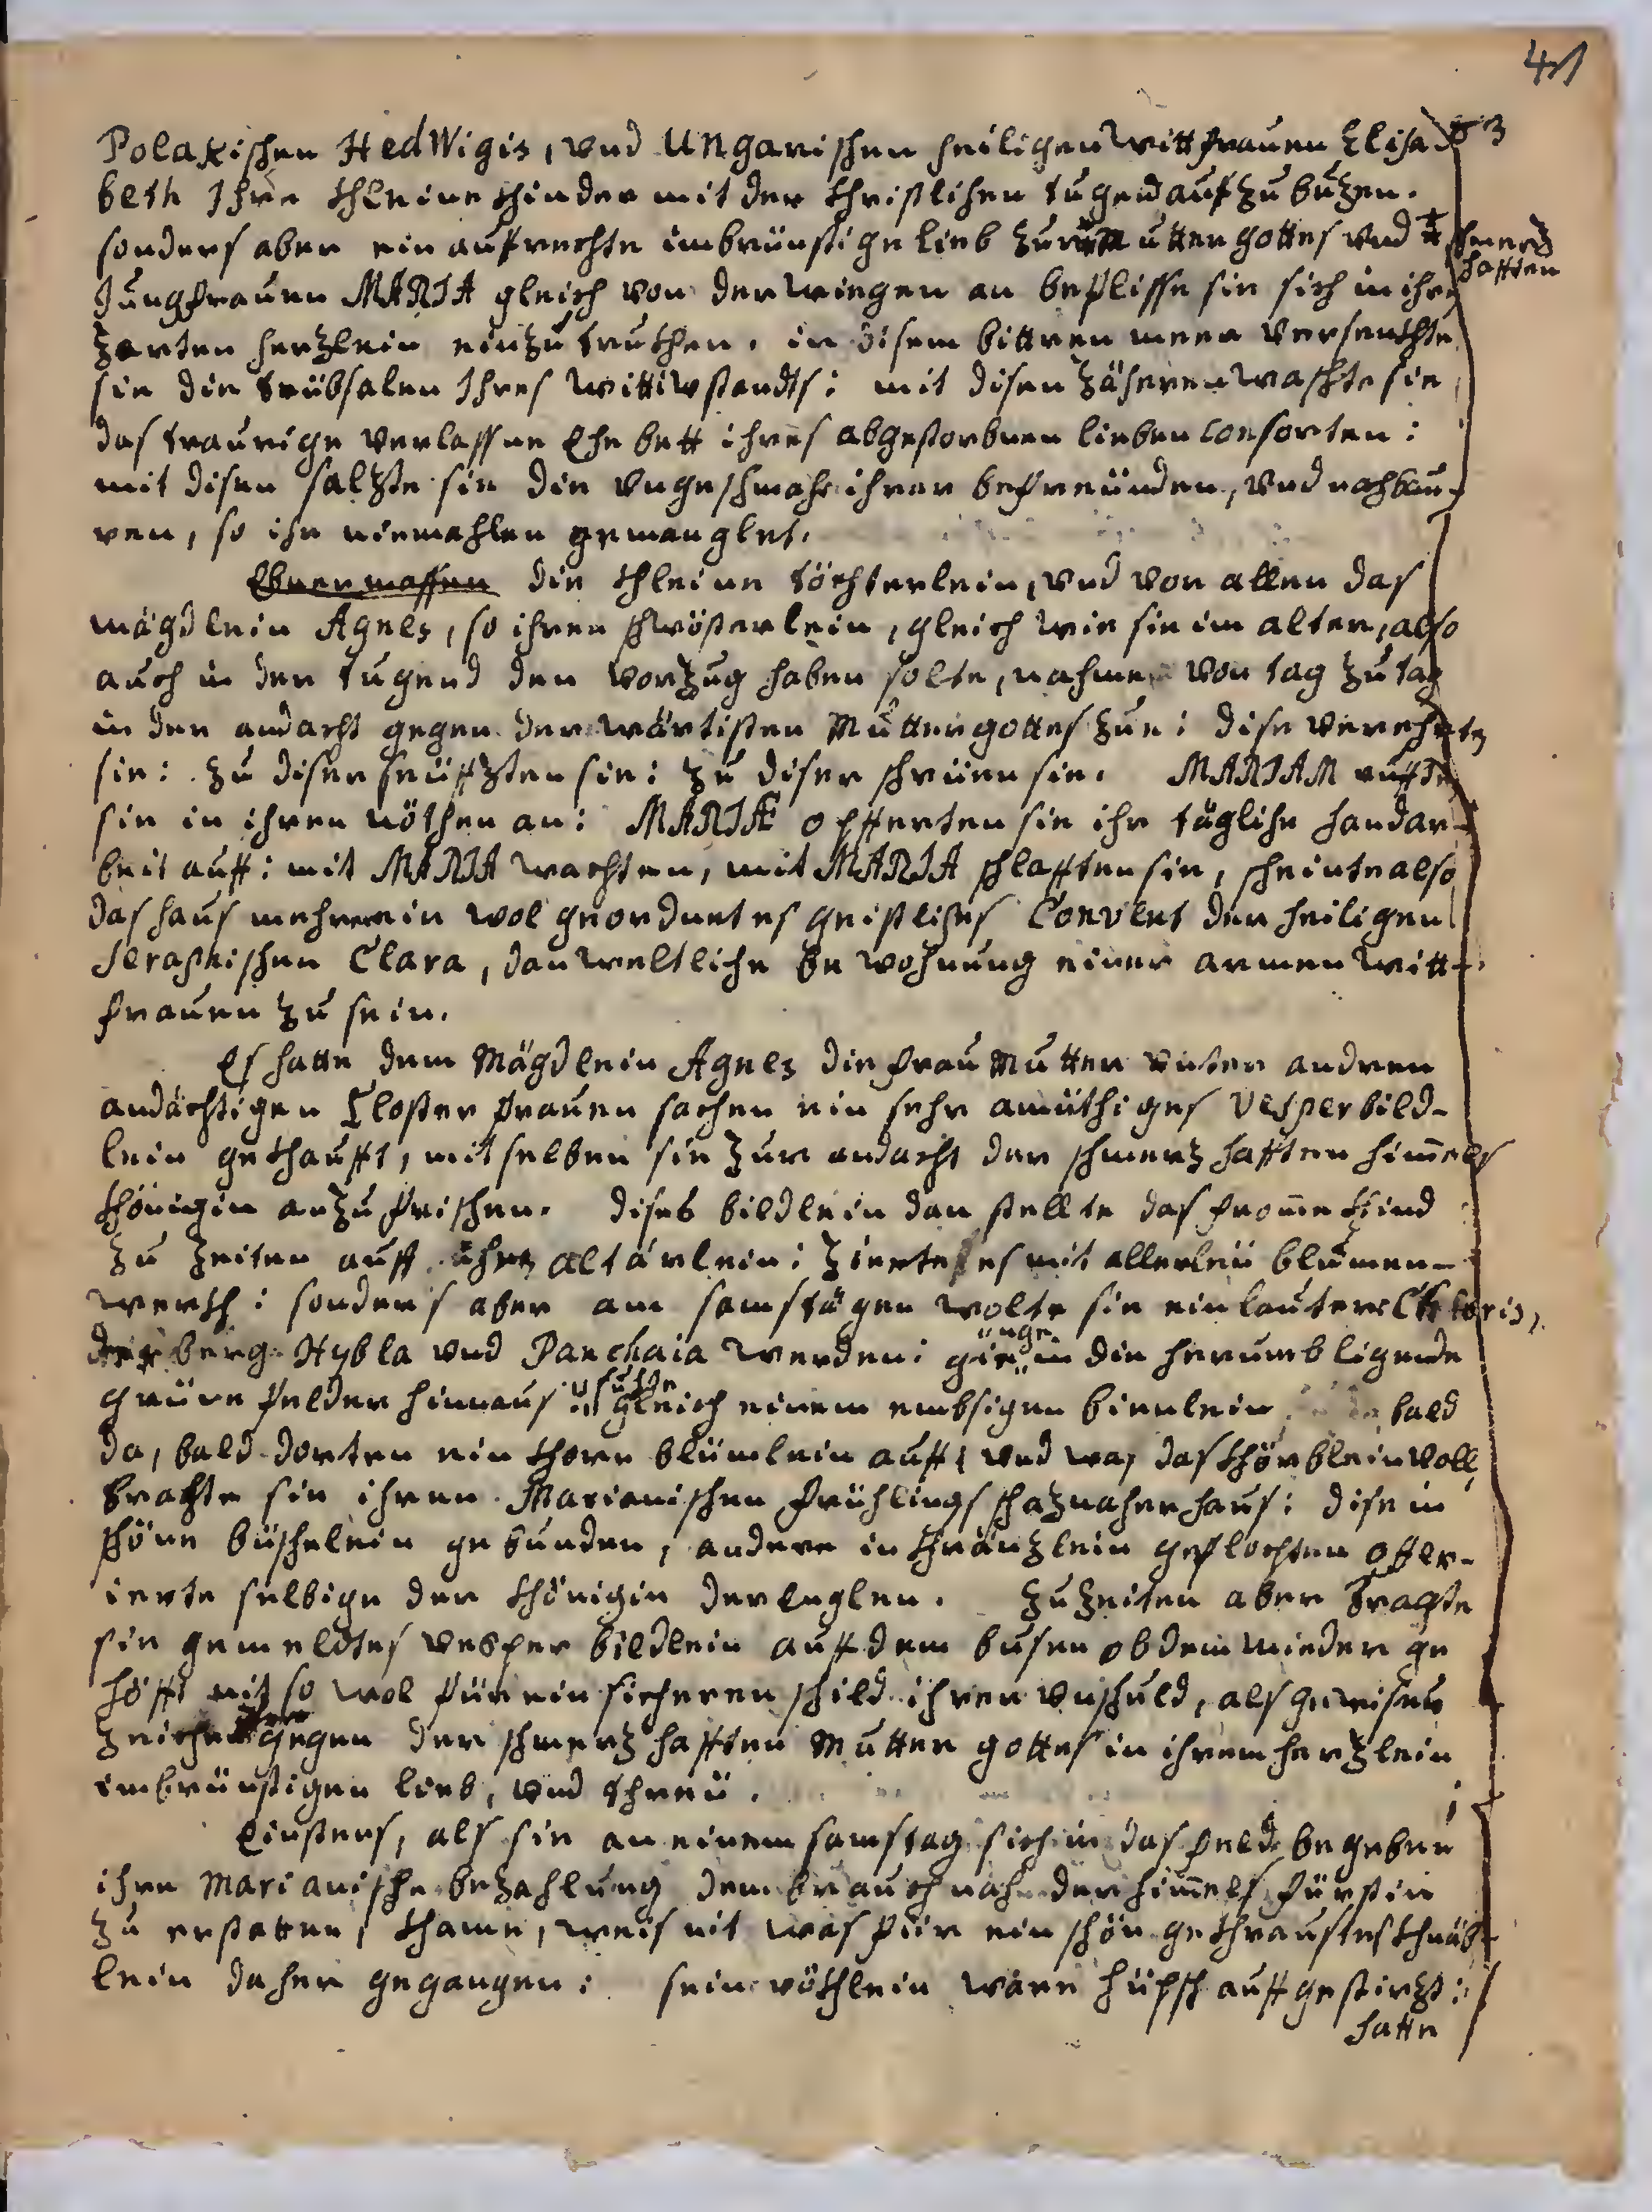 41
Polakischen HedWigis, vnd Ungarischen heiligen Wittfrauen Elisa-
beth Ihre khleine khinder mit der khristlichen tugend aufzubuzen.
sonders aber ein aufrechte inbrünstige lieb zur Mutter gottes vnd
schmerz
hafften
Jungfrauen MARIA gleich von der wiegen an beflisse sie sich in ihre
zarten herzlein einzutrukhen. in disem bittren meer versenkhte
sie die trübsalen Ihres wittibstandts: mit disen zäheren waschte sie
das traurige verlassne Ehebett ihres abgestorbnen lieben Consorten:
mit disen salzte sie die vngeschmahe ihrer befreünden, vnd nachbau-
ren, so ihr niemahlen gemanglet.
Ebnermassen die khleine töchterlein, vnd vor allen das
mägdlein Agnes, so ihren schwösterlein, gleich wie sie im alter, also
auch in der tugend den vorzug haben solte, nahmen von tag zu tag
in der andacht gegen der wärtisten Mutter gottes zue: dise verehrten
sie: zu diser seüffzten sie: zu diser schrüen sie. MARIAM rufften
sie in ihren nöthen an: MARIÆ opfferten sie ihr tägliche handar-
beit auff: mit MARIA wachten, mit MARIA schlafften sie, scheinte also
das haus mehr ein wol geordnetes geistliches Convent der heiligen
Seraphischen Clara, dan weltliche bewohnung einer armen witt-
frauen zu sein.
Es hatte dem Mägdlein Agnes die frau Mutter vnter andren
andächtigen Closter frauen sachen ein sehr amüthiges Vesperbild-
lein gekhaufft, mit selben sie zur andacht der schmerzhafften himmels
khönigin anzufrischen. dises bildlein dan stellte das fromme khind
zu zeiten auff ihr altärlein: zierte es mit allerleü blumen-
werch: sonders aber am samstägen wolte sie ein lautere
der berg Hybla vnd Panchaia werden: gienge in die herumbligende
grüne felder hinnaus: suchte gleich einem embsigen bienlein bald
da, bald dorten ein khore blümlein auff: vnd was das khörblein voll,
brachte sie ihren Marianischen frühlings schaz naher haus: dise in
schöne büschelein gebunden, andere in khränzlein geflochten offer-
ierte selbige der khönigin der Englen. Zu zeiten aber tragte
sie gemeldtes vesper bildlein auff dem busen ob dem mieder ge
höfft nit so wol für ein sicheren schild ihrer vnschuld, als gewises
zeichen gegen der schmerzhafften Mutter gottes in ihrem herzlein
inbrünstigen lieb, vnd threü.
Einstens, als sie an einem samstag sich in das feld begeben
ihre Marianische bezahlung dem brauch nach der himmels fürstin
zu erstatten, khame, weis nit was für ein schön gekhraustes khnäb-
lein daher gegangen: sein röckhlein ware hüpsch auffgestirzt:
hatte